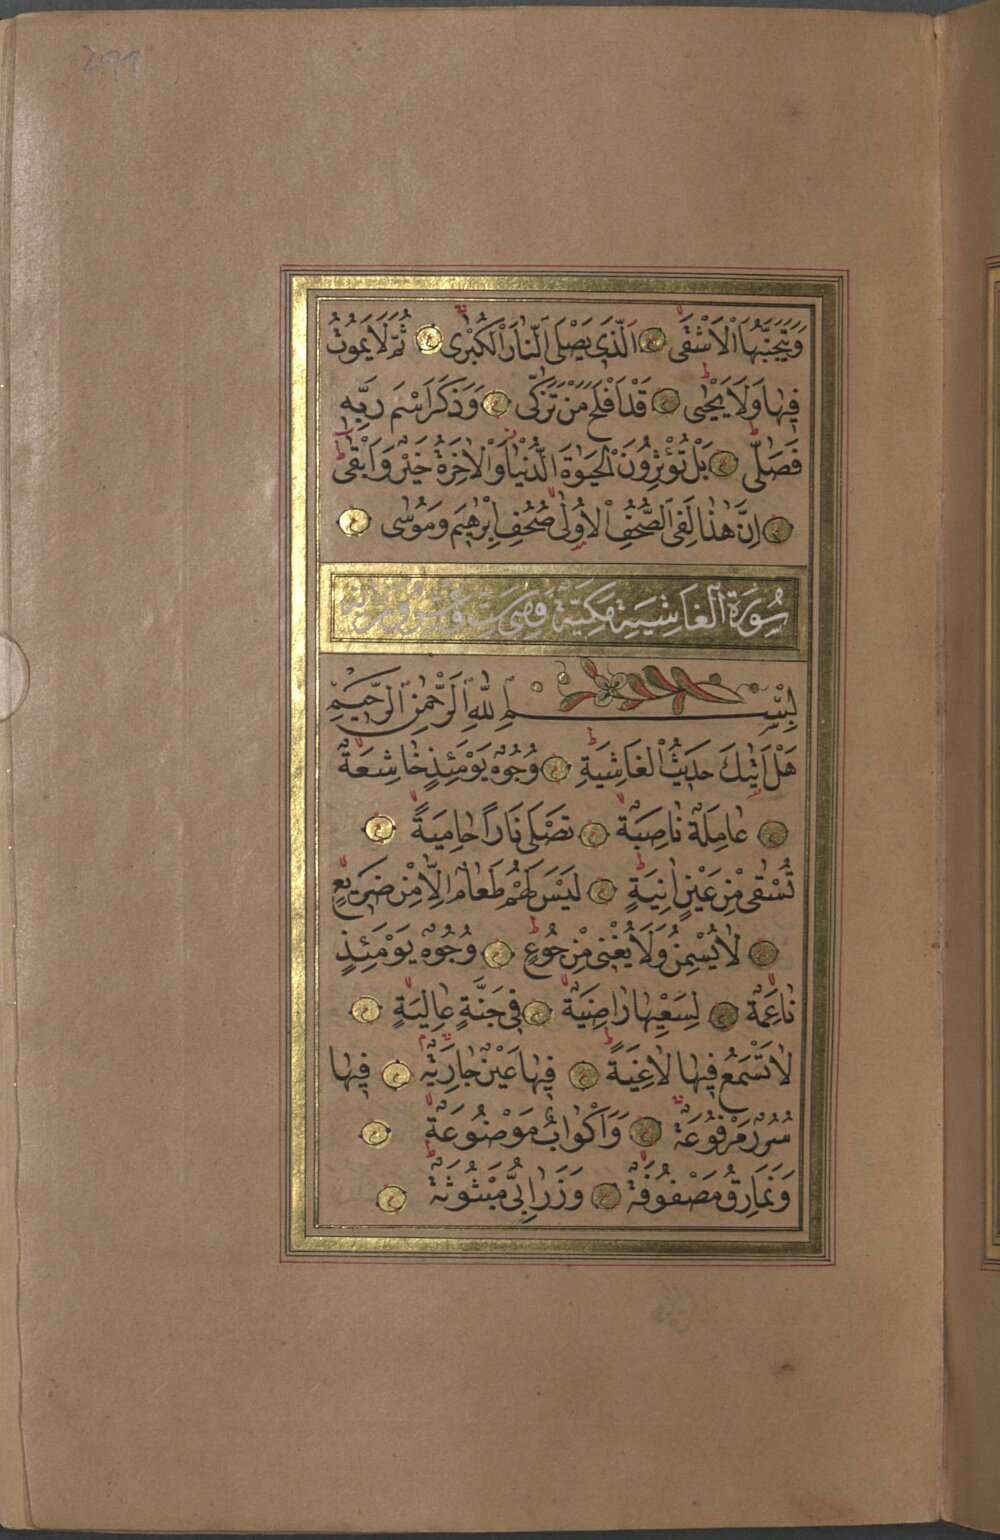 299
وَيَتَجَنَّبُهَا الْاَشْقَى اَلَّذٖى يَصْلَى النَّارَ الْكُبْرٰى ثُمَّ لَا يَمُوتُ
فٖيهَا وَلَا يَحْيٰى قَدْ اَفْلَحَ مَنْ تَزَكّٰى وَذَكَرَ اسْمَ رَبِّهٖ
فَصَلّٰى بَلْ تُؤْثِرُونَ الْحَيٰوةَ الدُّنْيَا وَالْاٰخِرَةُ خَيْرٌ وَاَبْقٰى
اِنَّ هٰذَا لَفِى الصُّحُفِ الْاُولٰى صُحُفِ اِبْرٰهٖيمَ وَمُوسٰى
سُورَةُ الْغَاشِيَةِ مَكِّيَّةٌ وَهِىَ سِتٌّ وَعِشْرُونَ اٰيَةً
بِسْمِ اللّٰهِ الرَّحْمٰنِ الرَّحٖيمِ
هَلْ اَتٰيكَ حَدٖيثُ الْغَاشِيَةِ وُجُوهٌ يَوْمَئِذٍ خَاشِعَةٌ
عَامِلَةٌ نَاصِبَةٌ تَصْلٰى نَارًا حَامِيَةً
تُسْقٰى مِنْ عَيْنٍ اٰنِيَةٍ لَيْسَ لَهُمْ طَعَامٌ اِلَّا مِنْ ضَرٖيعٍ
لَا يُسْمِنُ وَلَا يُغْنٖى مِنْ جُوعٍ وُجُوهٌ يَوْمَئِذٍ
نَاعِمَةٌ لِسَعْيِهَا رَاضِيَةٌ فٖى جَنَّةٍ عَالِيَةٍ
لَا تَسْمَعُ فٖيهَا لَاغِيَةً فٖيهَا عَيْنٌ جَارِيَةٌ فٖيهَا
سُرُرٌ مَرْفُوعَةٌ وَاَكْوَابٌ مَوْضُوعَةٌ
وَنَمَارِقُ مَصْفُوفَةٌ وَزَرَابِىُّ مَبْثُوثَةٌ